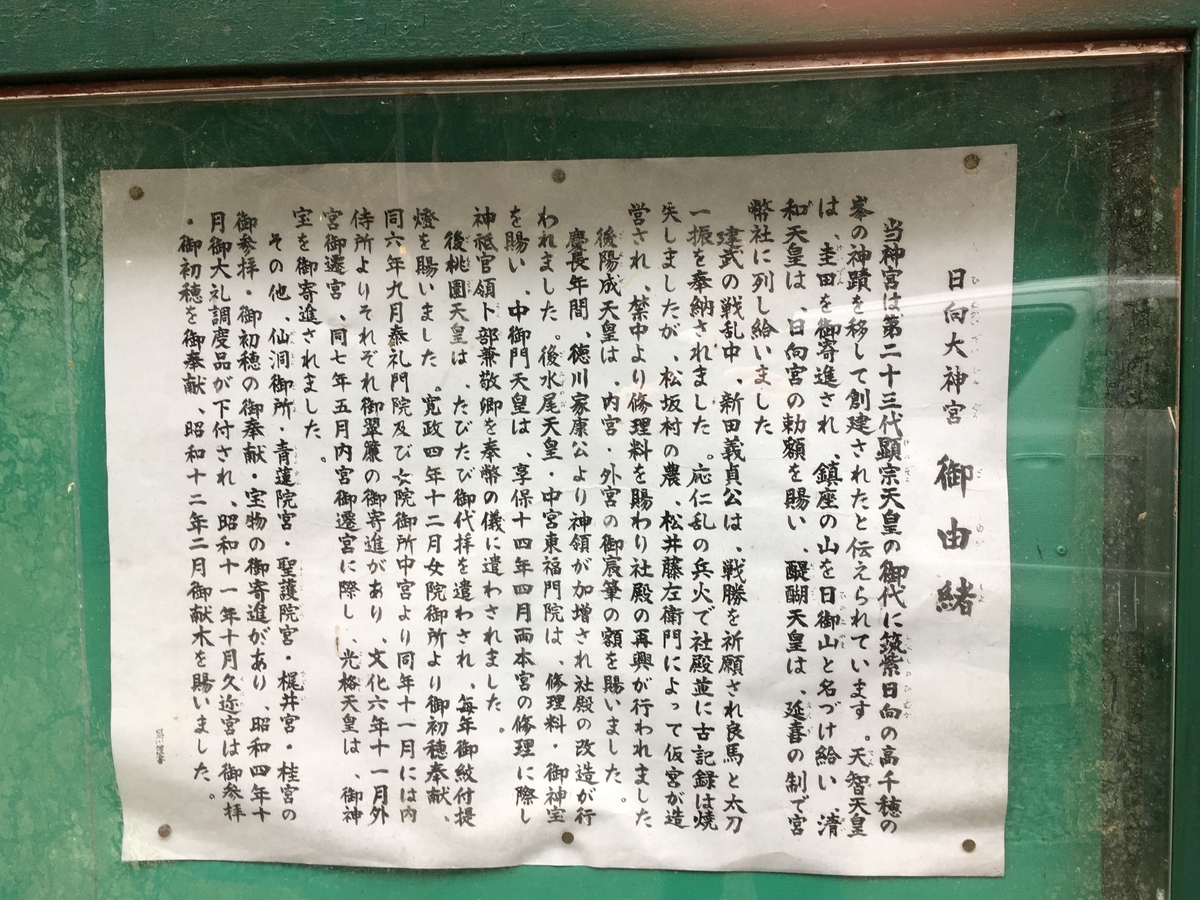 日向大神宮 御由緒
当神宮は第二十三代顕宗天皇の御代に筑紫日向の高千穂の
峯の神蹟を移して創建されたと伝えられています。天智天皇
は、圭田を御寄進され、鎮座の山を日御山と名づけ給い、清
和天皇は、日向宮の勅額を賜い、醍醐天皇は、延喜の制で官
幣社に列し給いました
建武の戦乱中、新田義貞公は、戦勝を祈願され良馬と太刀
一振を奉納されました。応仁乱の兵火で社殿並に古記録は焼
失しましたが、松坂村の農、松井藤左衛門によって仮宮が造
営され、禁中より修理料を賜わり社殿の再興が行われました
後陽成天皇は、内宮・外宮の御宸筆の額を賜いました。
慶長年間、徳川家康公より神領が加増され社殿の改造が行
われました。後水尾天皇・中宮東福門院は、修理料・御神宝
を賜い、中御門天皇は、享保十四年四月両本宮の修理に際し
神祗官領卜部兼敬卿を奉幣の儀に遣わされました。
後桃園天皇は、たびたび御代拝を遣わされ、毎年御紋付提
燈を賜いました。寛政四年十二月女院御所より御初穂奉献、
同六年九月恭礼門院及び女院御所中宮より同年十一月には内
侍所よりそれぞれ御翠簾の御寄進があり、文化六年十一月外
宮御遷宮、同七年五月内宮御遷宮に際し、光格天皇は、御神
宝を御寄進されました。
その他、仙洞御所・青蓮院宮・聖護院宮・梶井宮・桂宮の
御参拝・御初穂の御奉献・宝物の御寄進があり、昭和四年十
月御大礼調度品が下付され、昭和十一年十月久邇宮は御参拝
・御初穂を御奉献、昭和十二年二月御献木を賜いました。